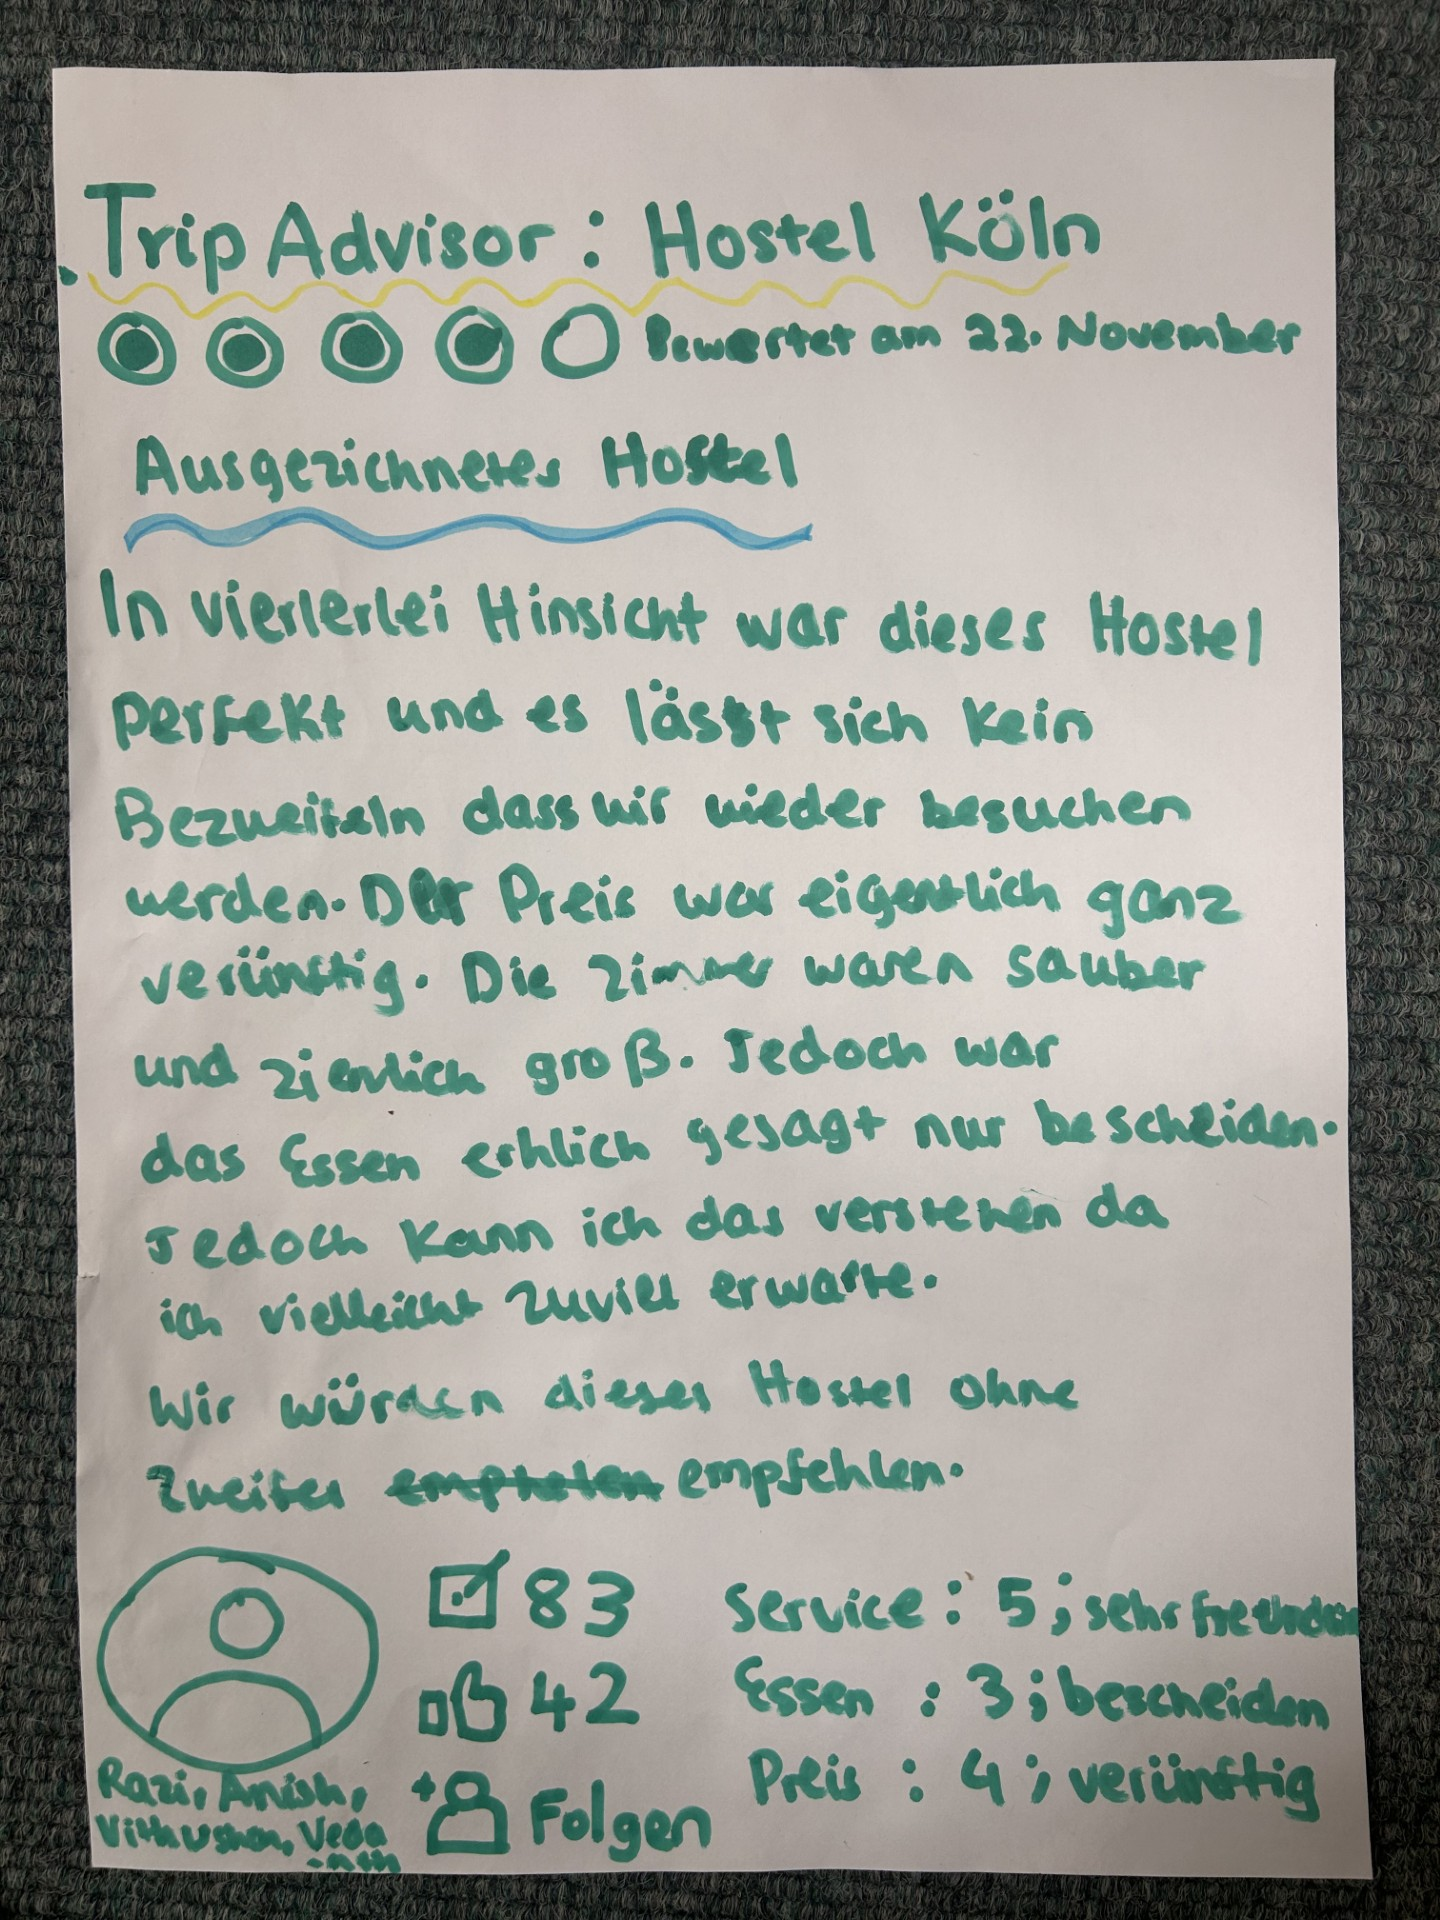 Trip Advisor : Hostel Köln
Bewertet am 22. November
Ausgezeichnetes Hostel
In vierlerlei Hinsicht war dieses Hostel
perfekt und es lässt sich kein
Bezweifeln dass wir wieder besuchen
werden. Der Preis war eigentlich ganz
verünftig. Die Zimmer waren sauber
und ziemlich groß. Jedoch war
das Essen erhlich gesagt nur bescheiden.
Jedoch kann ich das verstehen da
ich vielleicht zuviel erwarte.
Wir würden dieses Hostel ohne
Zweifel empfehlen.
83
42
+ Folgen
Service : 5 ; sehr
Essen : 3 ; bescheiden
Preis : 4 ; verünftig
Razi, Anish,
Vithushan, Veda
-nth